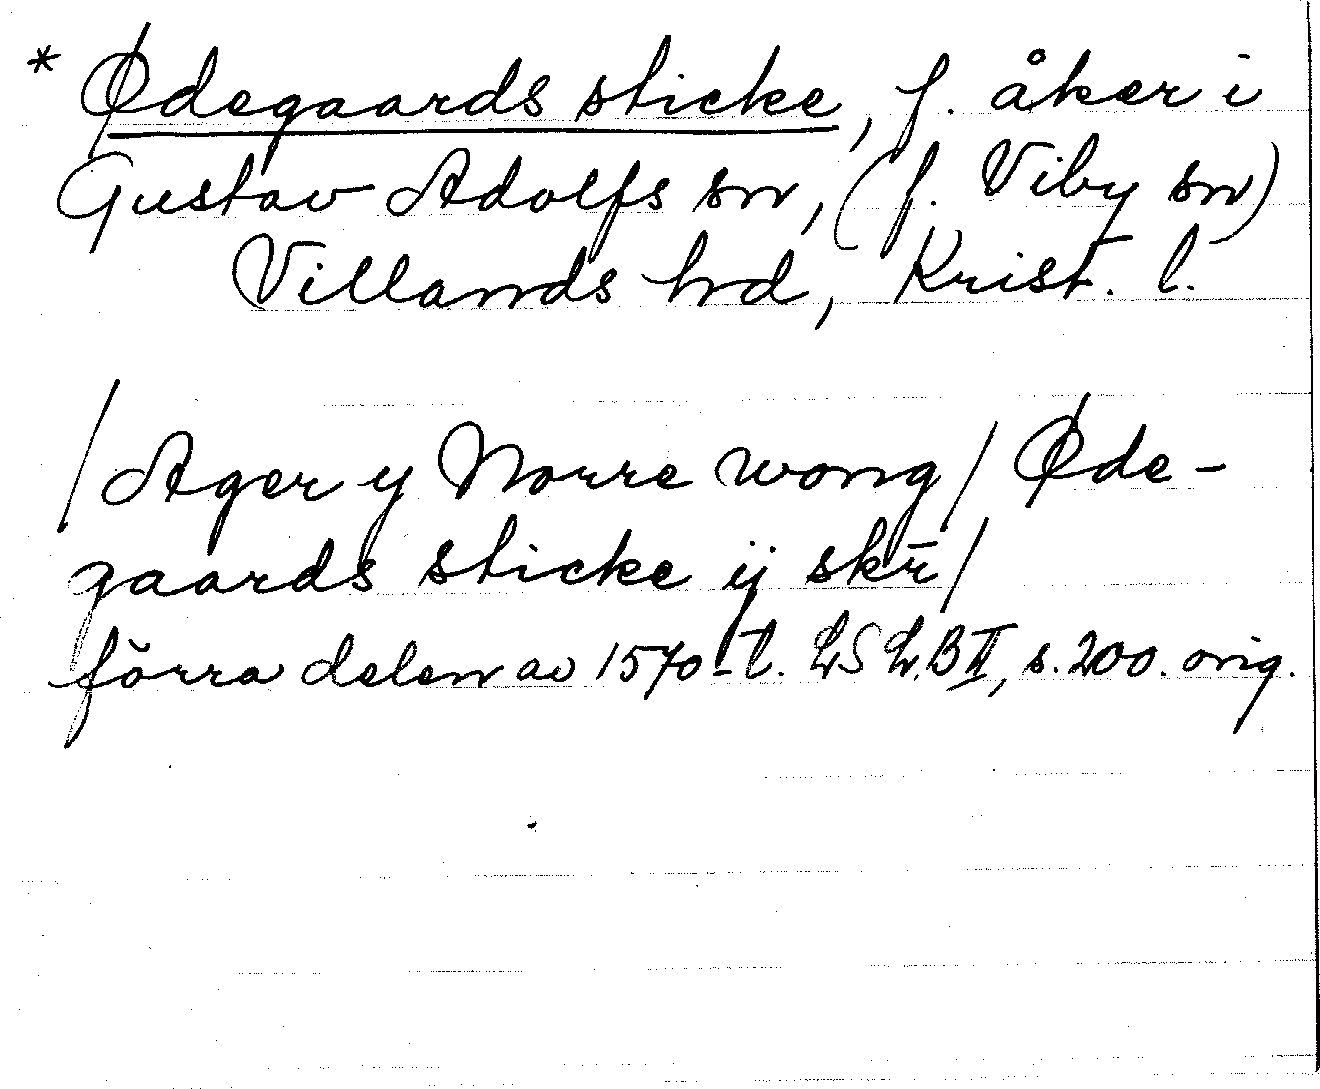 * Ødegaards sticke, f. åker i
Gustav Adolfs sn, (f. Viby sn)
Villands hd, Krist. l.
/Ager y Norre wong/ Øde-
gaards sticke ij skr̄/
förra delen av 1570-t. LSLB II, s. 200. orig.